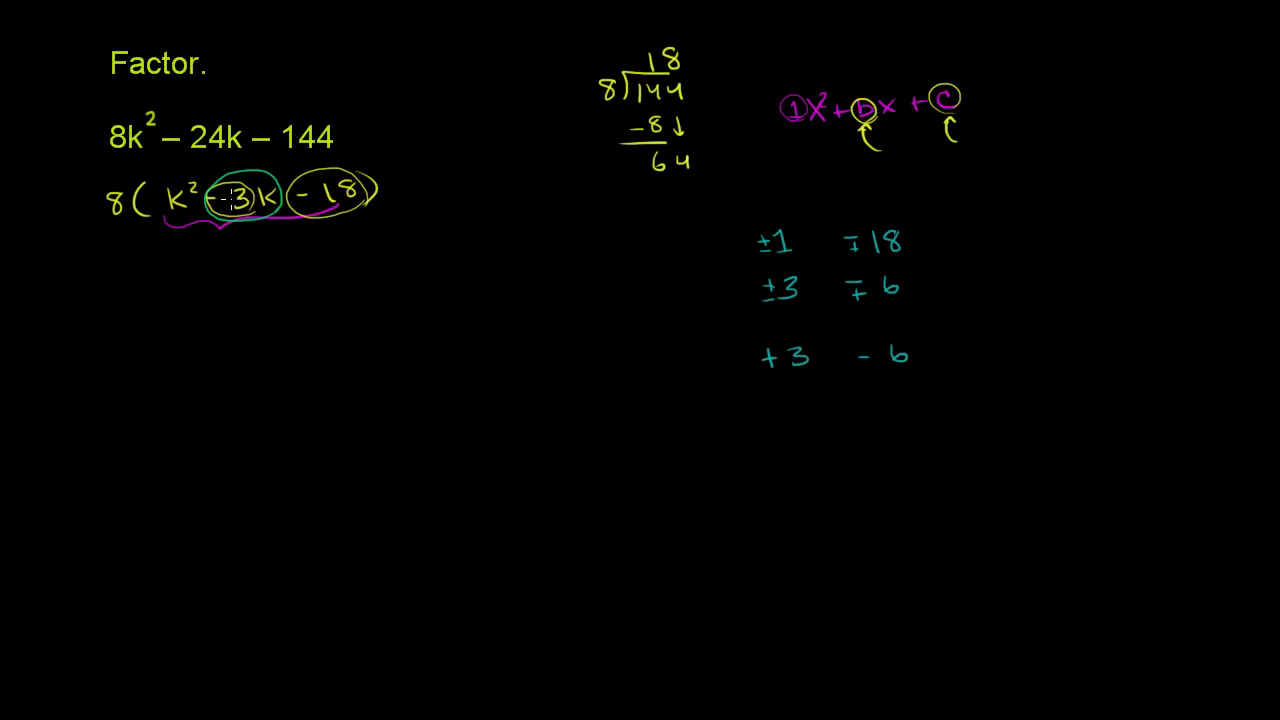 Factor.
8k² – 24k – 144
8( k² - 3k - 18)
18
8)144
-8↓
64
1x² + bx + c
±1 ∓18
±3 ∓6
+3 -6